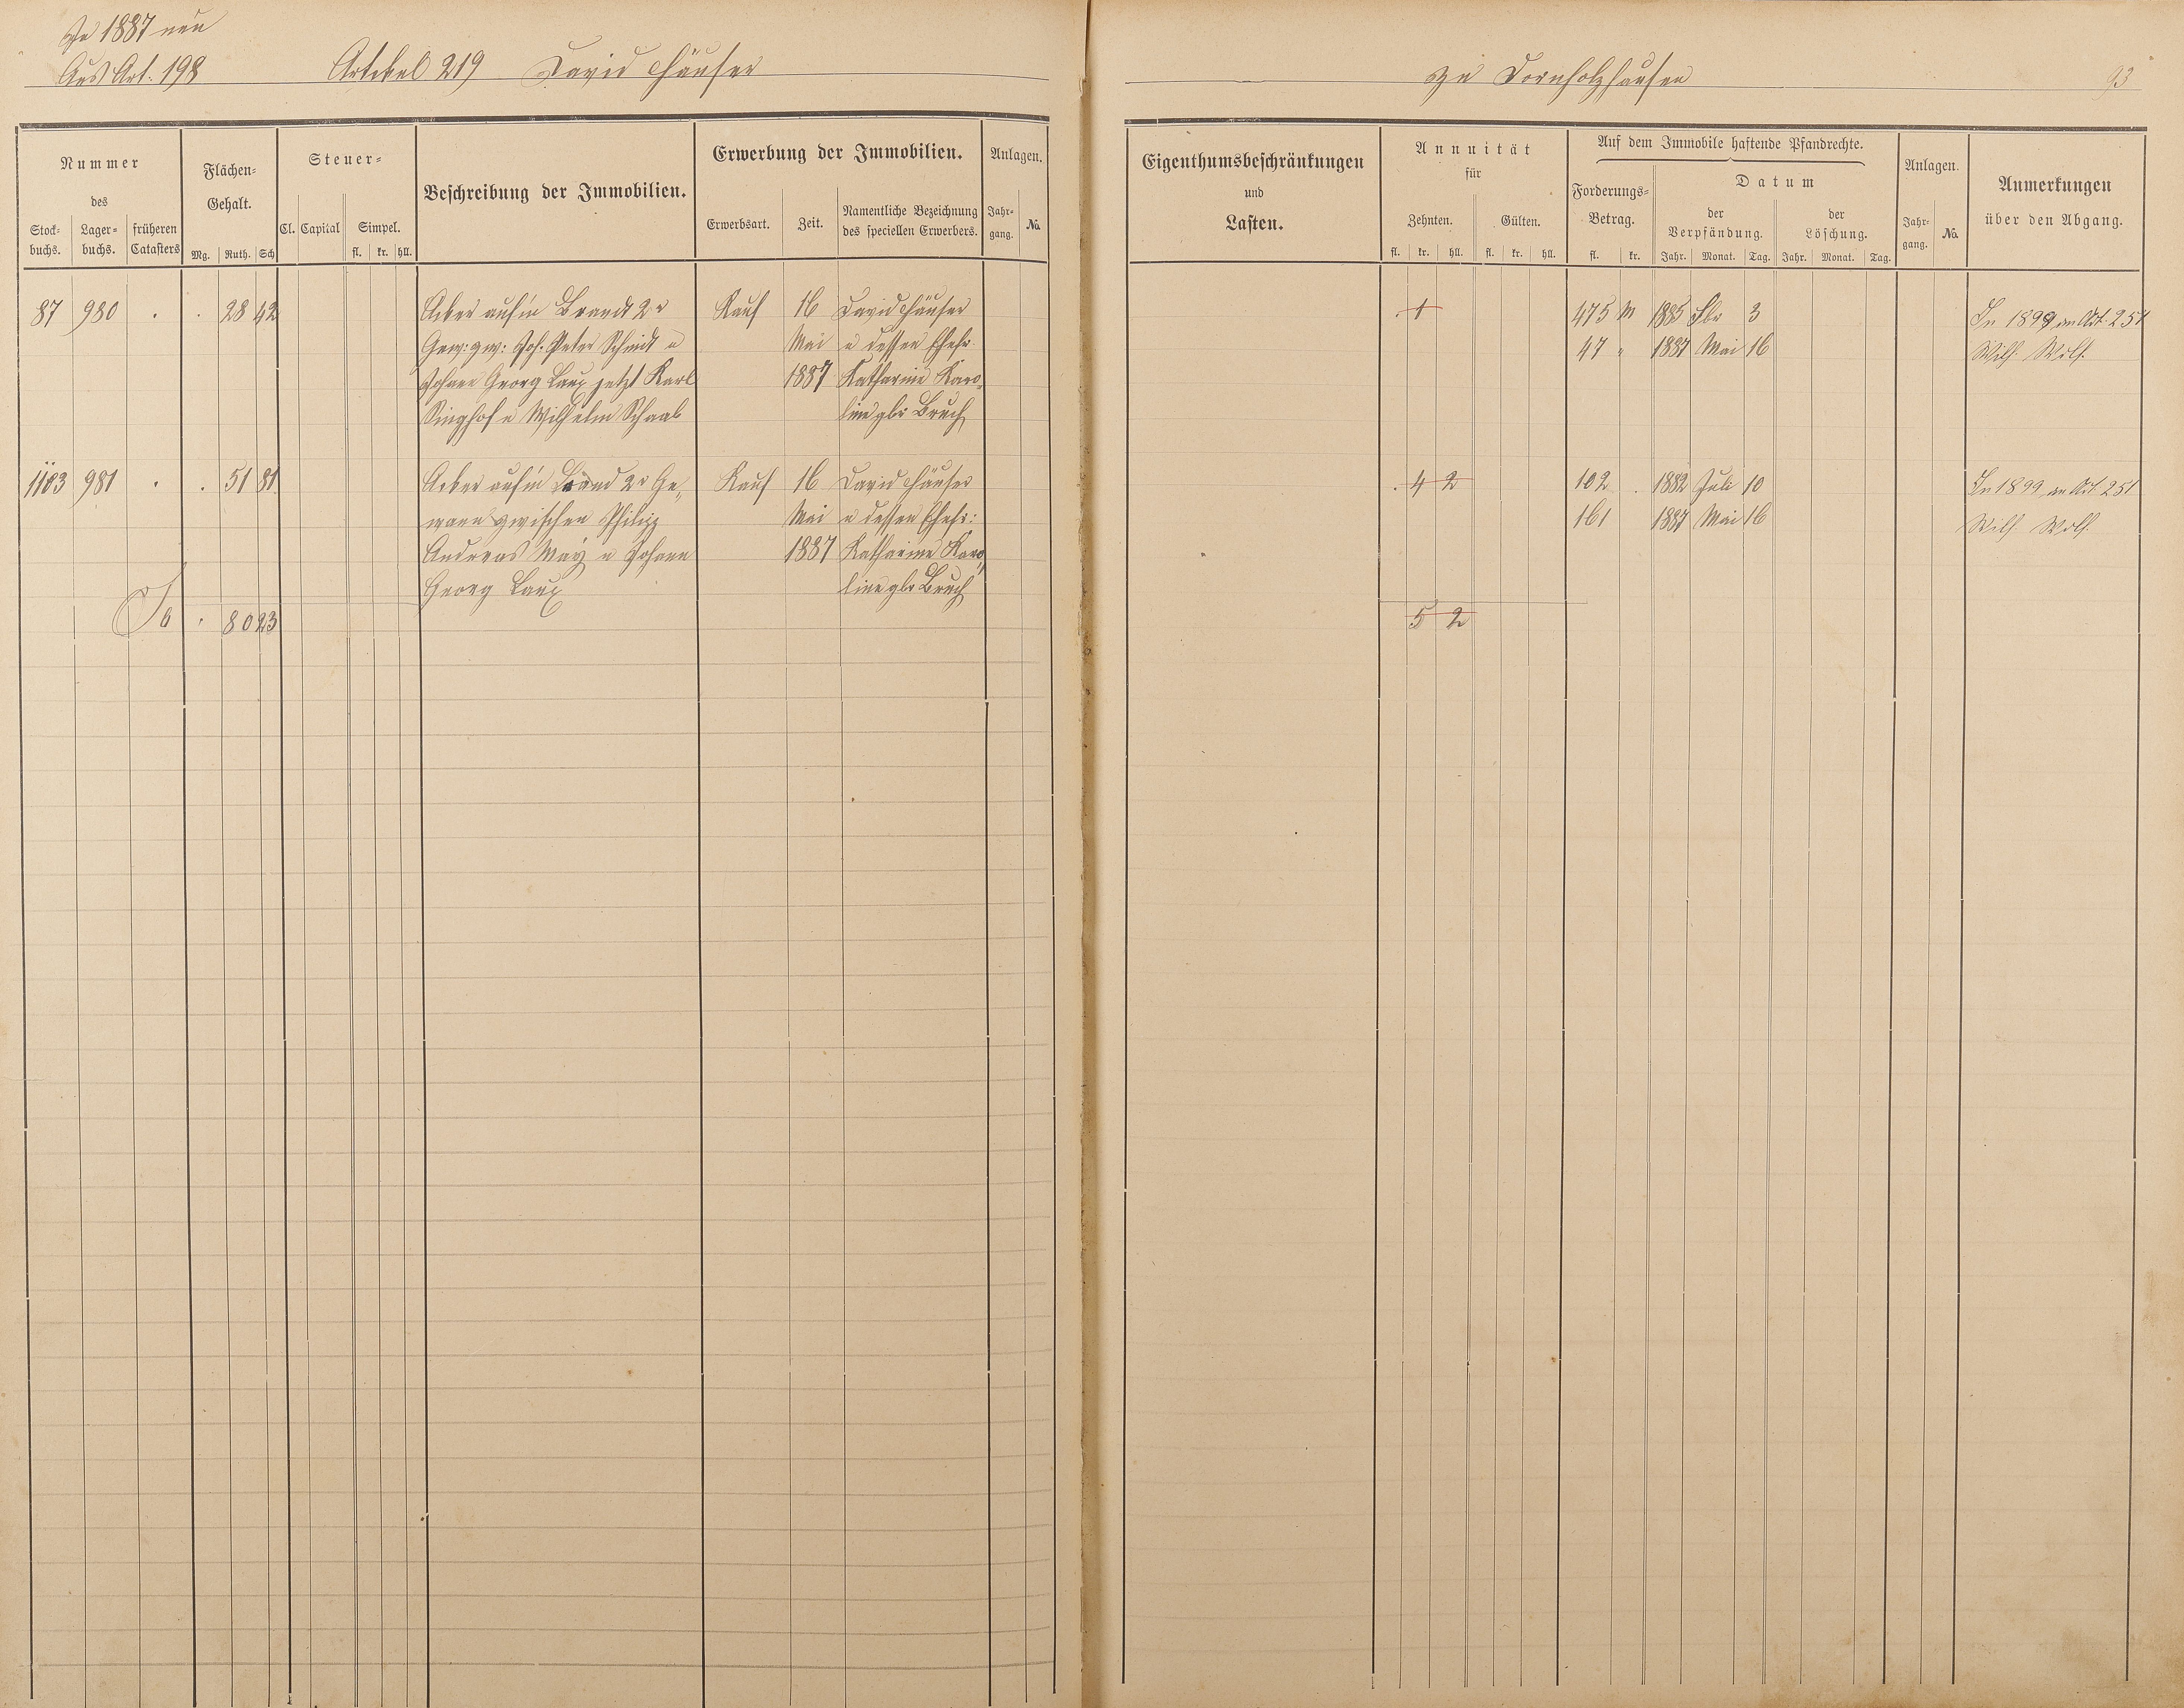 In 1887 neu
Aus Art. 198 Artikel 219 David Häuser
zu Dornholzhausen 93
Nummer
des
Stock-buchs. Lager-buchs. früheren Catasters
Flächen-Gehalt.
Mg. Ruth. Sch
Steuer-
Cl. Capital Simpel.
fl. kr. hll.
Beschreibung der Immobilien.
Erwerbung der Immobilien.
Erwerbsart. Zeit. Namentliche Bezeichnung des speciellen Erwerbers.
Anlagen.
Jahr-gang. No.
Eigenthumsbeschränkungen
und
Lasten.
Annuität
für
Zehnten. Gülten.
fl. kr. hll. fl. kr. hll.
Auf dem Immobile haftende Pfandrechte.
Forderungs-Betrag.
fl. kr.
Datum
der Verpfändung. der Löschung.
Jahr. Monat. Tag. Jahr. Monat. Tag.
Anlagen.
Jahr-gang. No.
Anmerkungen
über den Abgang.
87 980 . . 28 42 Acker auf'm Brandt 2r Kauf 16 David Häuser 1 475 M 1885 Fbr 3 In 1899 an Art. 251
Gew: zw: Joh. Peter Schmidt u Mai u dessen Ehefr. 47 " 1887 Mai 16 Wilh. Wolf.
Johann Georg Laux jetzt Karl 1887 Katharine Karo-
Singhof u Wilhelm Schaab line gbr Bruch
1103 981 . . 51 81 Acker auf'm Brand 2r Ge- Kauf 16 David Häuser . 4 2 102 . 1882 Juli 10 In 1899 an Art 251
wann zwischen Philipp Mai u dessen Ehefr: 161 1887 Mai 16 Wilh. Wolf.
Andreas May u Johann 1887 Katharine Karo-
Georg Laux line gbr Bruch
. 80 23 5 2